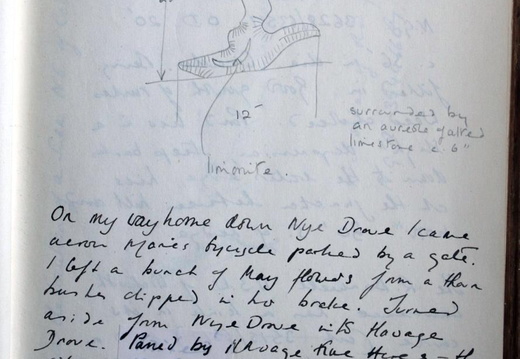 12"
surrounded by
an aureole of altered
limestone c. 6"
limonite.
On my way home down Nye Drove I came
across Marie's bycycle parked by a gate.
I left a bunch of May flowers from a thorn
bush clipped in her brake. Turned
aside from Nye Drove into Havage
Drove. Passed by Havage